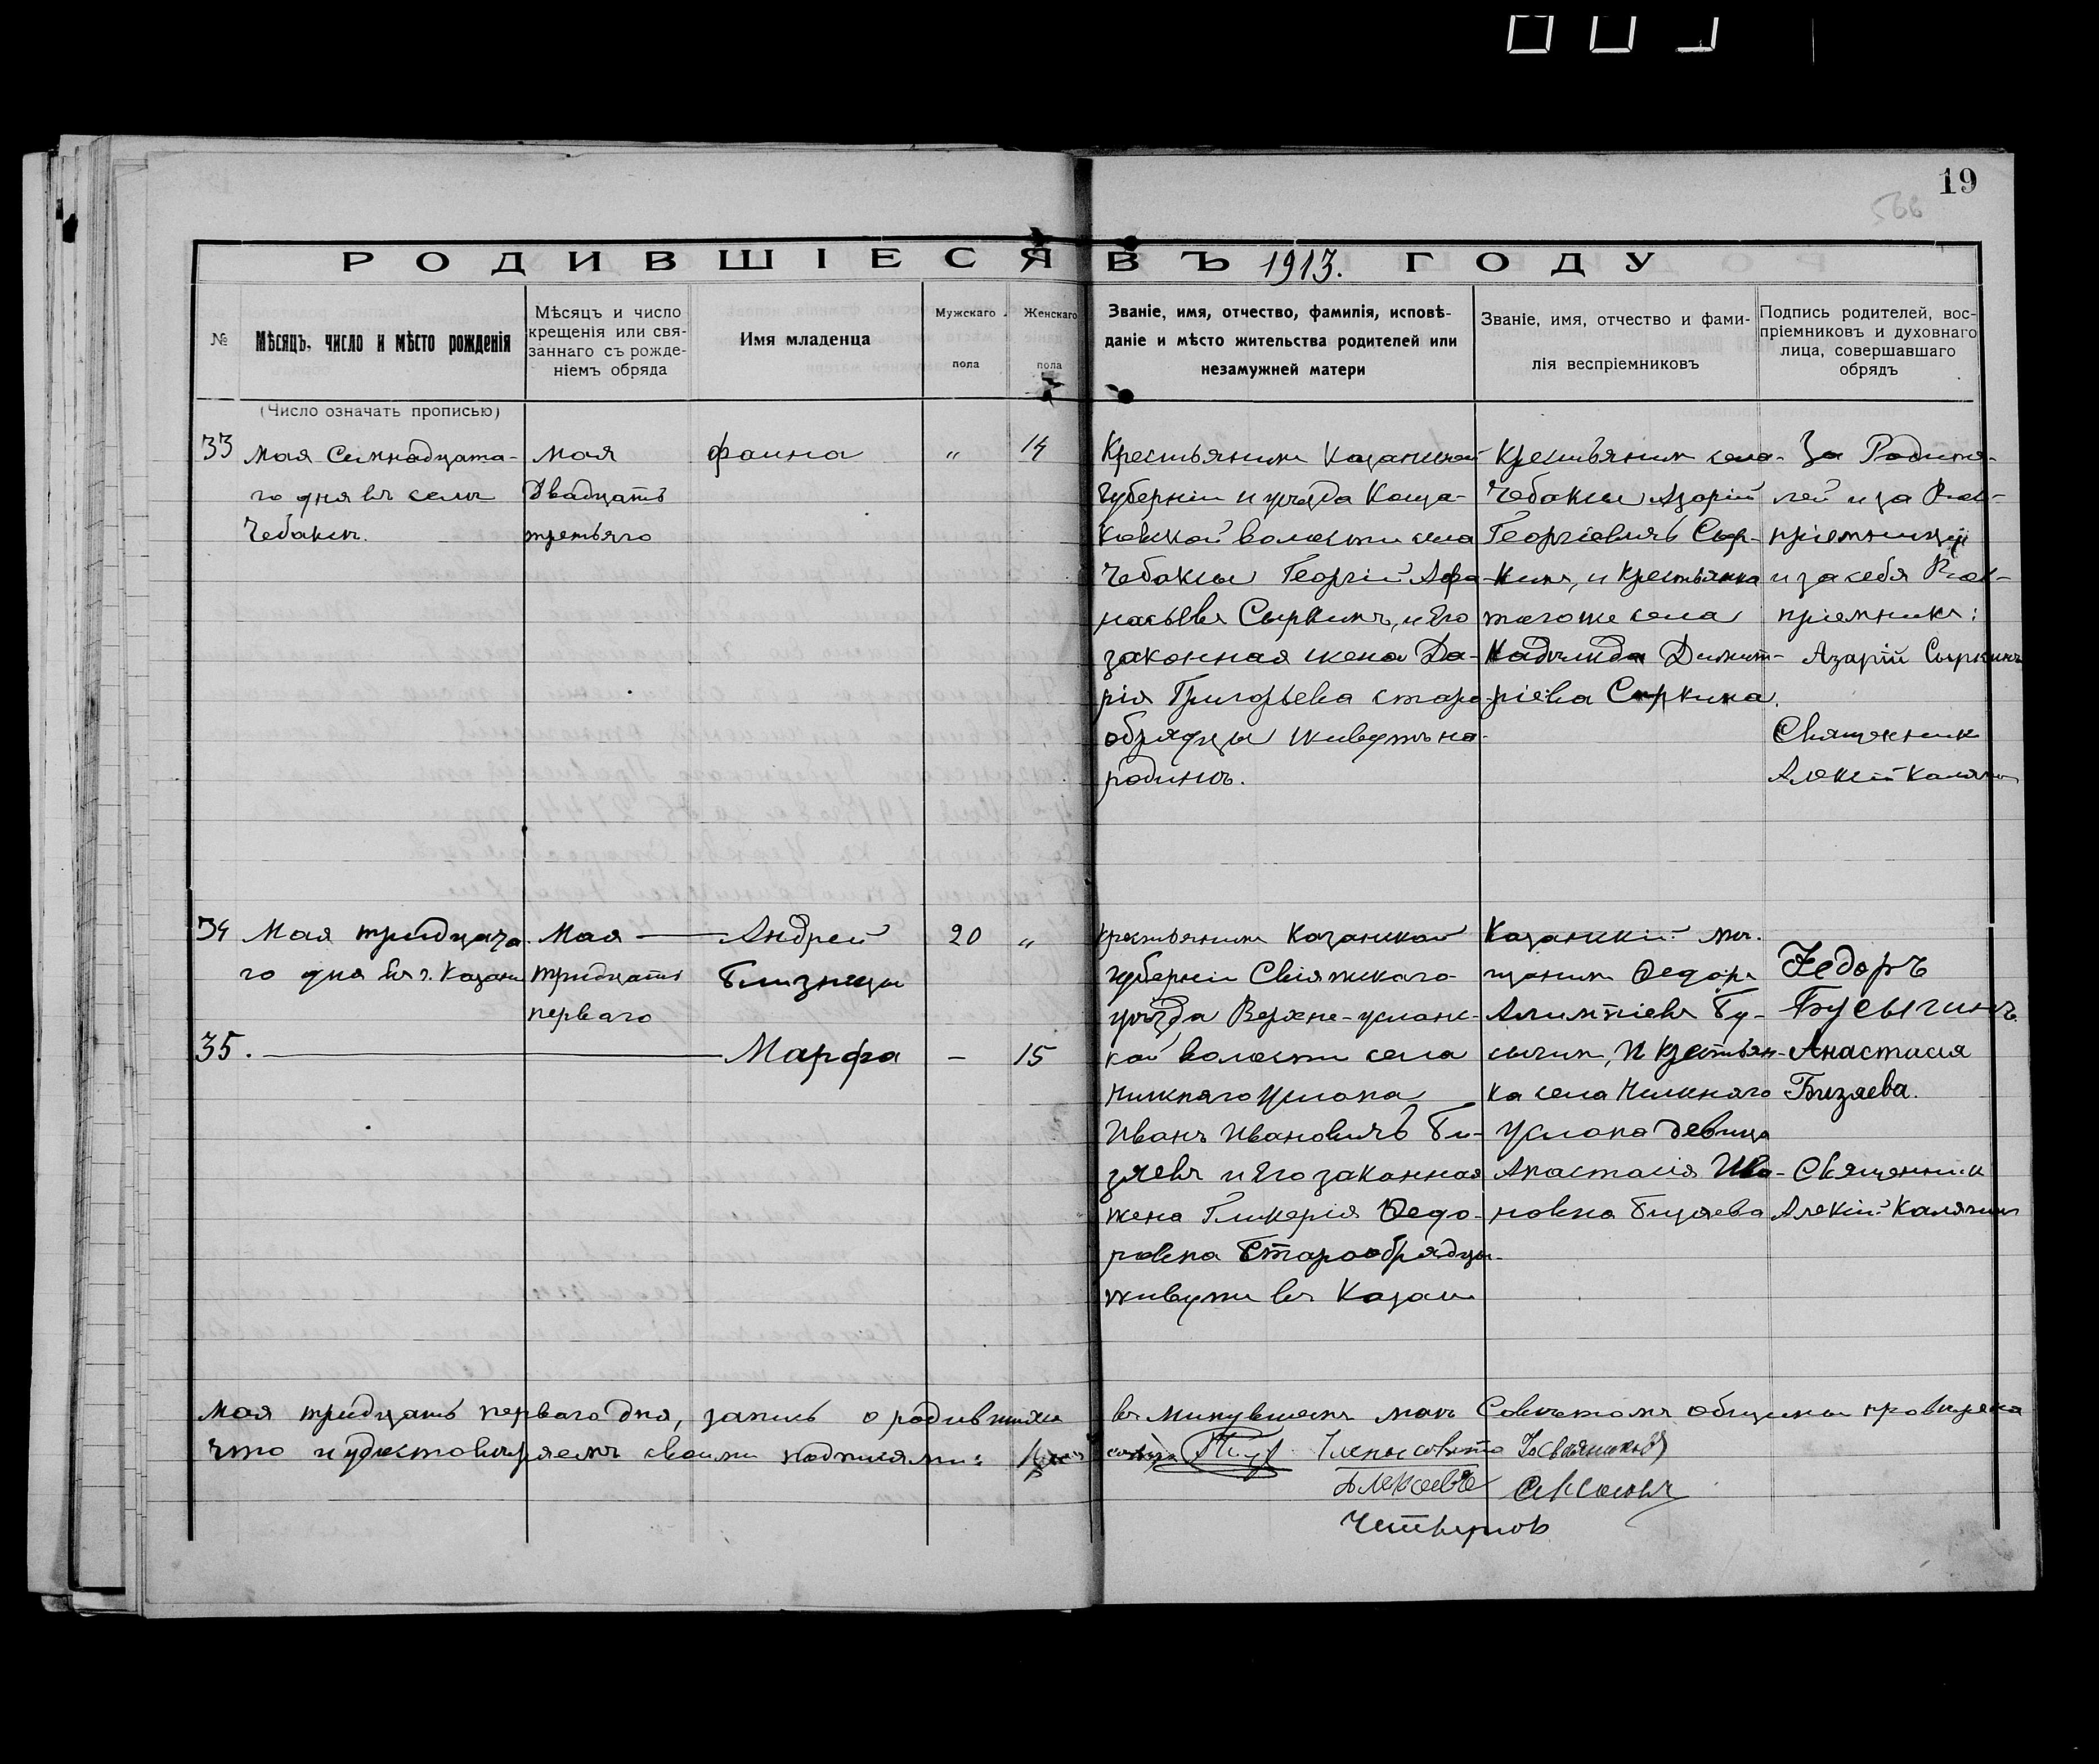 19
566
РОДИВШІЕСЯ ВЪ 1913. ГОДУ
№
Мѣсяцъ, число и мѣсто рожденія
Мѣсяцъ и число
крещенія или свя-
заннаго съ рожде-
ніемъ обряда
Имя младенца
Мужскаго
пола
Женскаго
пола
Званіе, имя, отчество, фамилія, исповѣ-
даніе и мѣсто жительства родителей или
незамужней матери
Званіе, имя, отчество и фами-
лія веспріемниковъ
Подпись родителей, вос-
пріемниковъ и духовнаго
лица, совершавшаго
обрядъ
(Число означать прописью)
33
Мая Семнадцата-
го дня въ селѣ
Чебаксы.
Мая
Двадцать
третьяго
Фаина
"
14
Крестьянинъ Казанской
Губерніи и уѣзда Каща-
ковской волости села
Чебаксы Георгій Афа-
насьевъ Сыркинъ, и Его
законная жена Да-
рія Григорьева старо-
обрядцы живутъ на
родинѣ.
Крестьянинъ села
Чебаксы Азарій
Георгіевичъ Сыр-
кинъ, и крестьянка
тогоже села
Надежда Димит-
ріева Сыркина.
За Родите-
лей и за Вос-
пріемницу
и за себя Вос-
пріемникъ:
Азарій Сыркинъ
Священник
Алексій Калягин
34
Мая тридцата
го дня въ г. Казани
Мая
тридцать
перваго
Андрей
Близнецы
20
"
35.
Марфа
–
15
Крестьянинъ Казанской
губерніи Свіяжскаго
уѣзда Верхне-услонс-
кой волости села
Нижняго Услона
Иванъ Ивановичъ Би-
зяевъ и Его законная
жена Гликерія Ѳедо-
ровна Старообрядцы
живутъ въ Казани
Казанскій мѣ-
щанинъ Ѳедоръ
Алимпіевъ Бу-
сыгин, И крестьян-
ка села Нижняго
Услона девица
Анастасія Ива-
новна Бизяева
Федоръ
Бусыгинъ.
Анастасия
Бизяева.
Священник
Алексій Калягин
Мая тридцать перваго дня, запись о родившихся въ минувшемъ маѣ Совѣтомъ общины провѣрена
что и удостовѣряемъ своими подписями: Члены совѣта
Алексеевъ
Четвергов